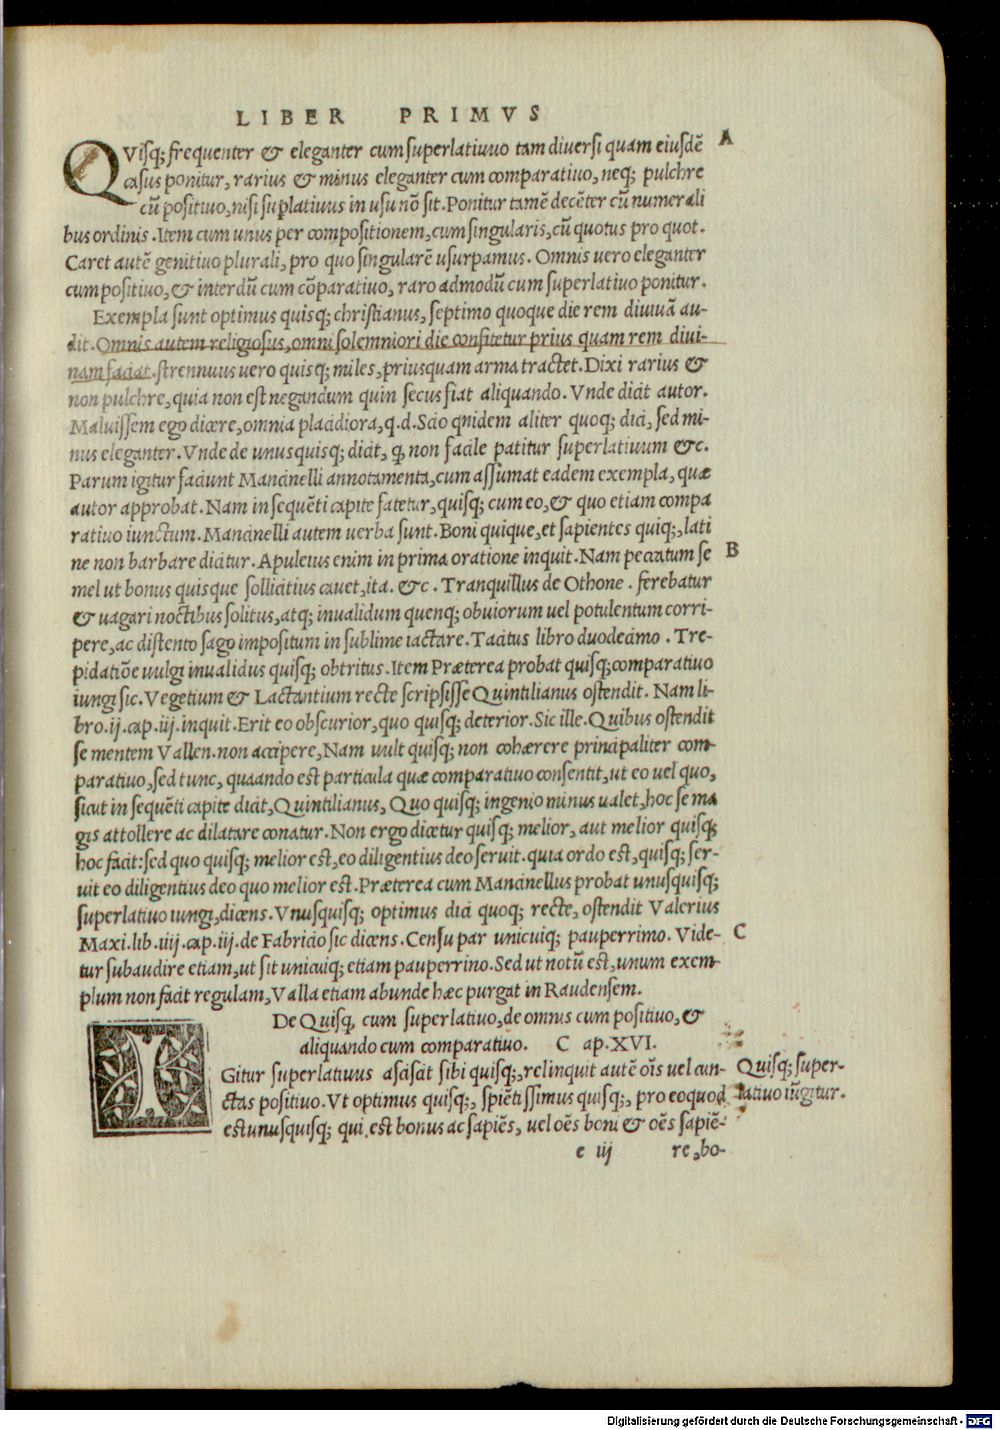 LIBER PRIMVS
QVisq; frequenter & eleganter cum superlatiuo tam diuersi quam eiusdē A
casus ponitur, rarius & minus eleganter cum comparatiuo, neq; pulchre
cū positiuo, nisi suplatiuus in usu nō sit. Ponitur tamē decēter cū numerali
bus ordinis. Item cum unus per compositionem, cum singularis, cū quotus pro quot.
Caret autē genitiuo plurali, pro quo singularē usurpamus. Omnis uero eleganter
cum positiuo, & interdū cum cōparatiuo, raro admodū cum superlatiuo ponitur.
Exempla sunt optimus quisq; christianus, septimo quoque die rem diuinā au-
dit. Omnis autem religiosus, omni solemniori die confitetur prius quam rem diui-
nam faciat. strennuus uero quisq; miles, priusquam arma tractet. Dixi rarius &
non pulchre, quia non est negandum quin secus fiat aliquando. Vnde dicit autor.
Maluissem ego dicere, omnia placidiora, q.d. Scio qnidem aliter quoq; dici, sed mi-
nus eleganter. Vnde de unusquisq; dicit, ꝙ non facile patitur superlatiuum &c.
Parum igitur faciunt Mancinelli annotamenta, cum assumat eadem exempla, quæ
autor approbat. Nam in sequēti capite fatetur, quisq; cum eo, & quo etiam compa
ratiuo iunctum. Mancinelli autem uerba sunt. Boni quique, et sapientes quiq;, lati
ne non barbare dicitur. Apuleius enim in prima oratione inquit. Nam peccatum se B
mel ut bonus quisque sollicitius cauet, ita. &c. Tranquillus de Othone. ferebatur
& uagari noctibus solitus, atq; inualidum quenq; obuiorum uel potulentum corri-
pere, ac distento sago impositum in sublime iactare. Tacitus libro duodecimo. Tre-
pidatiōe uulgi inualidus quisq; obtritus. Item Præterea probat quisq; comparatiuo
iungi sic. Vegetium & Lactantium recte scripsisse Quintilianus ostendit. Nam li-
bro.ij.cap.iij.inquit. Erit eo obscurior, quo quisq; deterior. Sic ille. Quibus ostendit
se mentem Vallen. non accipere, Nam uult quisq; non cohærere principaliter com-
paratiuo, sed tunc, quaando est particula quæ comparatiuo consentit, ut eo uel quo,
sicut in sequēti capite dicit, Quintilianus, Quo quisq; ingenio minus ualet, hoc se ma
gis attollere ac dilatare conatur. Non ergo dicetur quisq; melior, aut melior quisq;
hoc facit: sed quo quisq; melior est, eo diligentius deo seruit. quia ordo est, quisq; ser-
uit eo diligentius deo quo melior est. Præterea cum Mancinellus probat unusquisq;
superlatiuo iungi, dicens. Vnusquisq; optimus dici quoq; recte, ostendit Valerius
Maxi.lib.iiij.cap.iij.de Fabricio sic dicens. Censu par unicuiq; pauperrimo. Vide- C
tur subaudire etiam, ut sit unicuiq; etiam pauperrino. Sed ut notū est, unum exem-
plum non facit regulam, Valla etiam abunde hæc purgat in Raudensem.
De Quisq, cum superlatiuo, de omnis cum positiuo, &
aliquando cum comparatiuo. C ap. XVI.
IGitur superlatiuus asciscit sibi quisq;, relinquit autē oīs uel cun- Quisq; super-
ctas positiuo. Vt optimus quisq;, spiētissimus quisq;, pro eo quod latiuo iūgitur.
est unusquisq; qui est bonus ac sapiēs, uel oēs boni & oēs sapiē-
e iij re, bo-
Digitalisierung gefördert durch die Deutsche Forschungsgemeinschaft - DFG